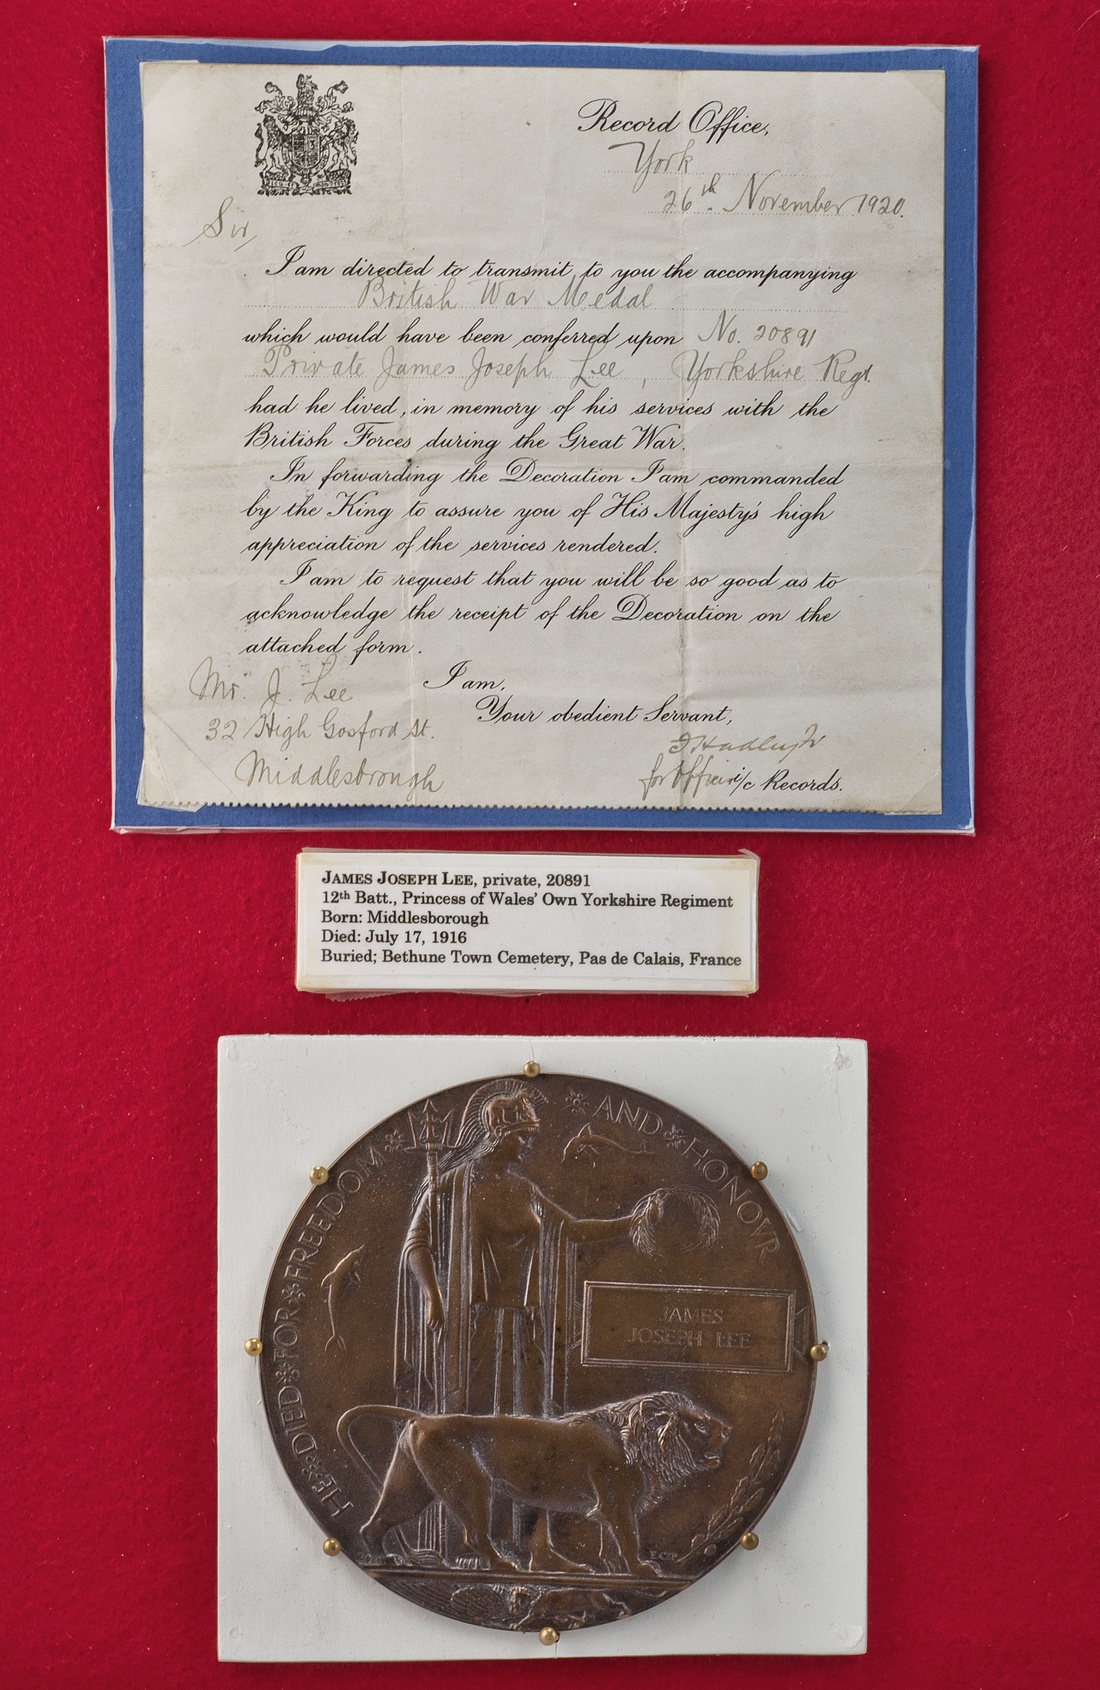 Record Office,
York
26th November 1920.
Sir,
I am directed to transmit to you the accompanying
British War Medal
which would have been conferred upon No. 20891
Private James Joseph Lee, Yorkshire Regt.
had he lived, in memory of his services with the
British Forces during the Great War.
In forwarding the Decoration I am commanded
by the King to assure you of His Majesty's high
appreciation of the services rendered.
I am to request that you will be so good as to
acknowledge the receipt of the Decoration on the
attached form.
I am,
Your obedient Servant,
for Officer i/c Records.
Mr. J. Lee
32 High Gosford St.
Middlesbrough
JAMES JOSEPH LEE, private, 20891
12th Batt., Princess of Wales' Own Yorkshire Regiment
Born: Middlesborough
Died: July 17, 1916
Buried; Bethune Town Cemetery, Pas de Calais, France
HE DIED FOR FREEDOM AND HONOVR
JAMES
JOSEPH LEE